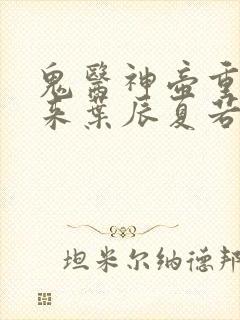 鬼醫神壺重
来葉辰夏若
坦米尔纳德邦